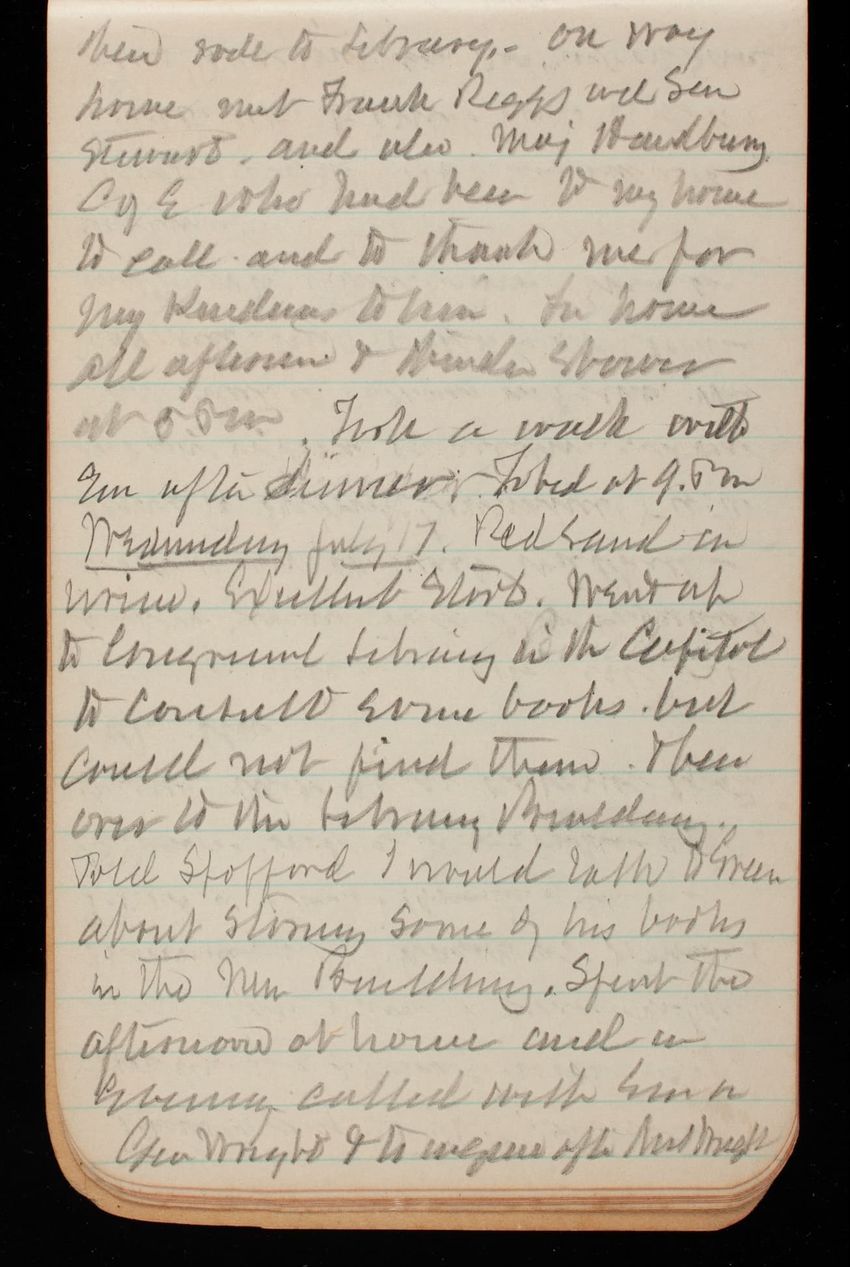 then rode to Library. - On way
home met Frank Riggs and Sen
Stewart. and also. Maj Handbury
C of E who had been to my house
to call. and to thank me for
my Kindness to him. In house
all afternoon & thunder Shower
at 5 P m. Took a walk with
Em after dinner. To bed at 9. P m
Wednesday July 17. Red Sand in
urine. Excellent Stool. Went up
to Congressional Library in the Capitol
to consult some books. but
could not find them. Then
over to the Library Building.
Told Spofford I would talk to Green
about storing some of his books
in the New Building. Spent the
afternoon at home and in
Evening called with Em on
Gen Wright & to inquire after Mrs Wright